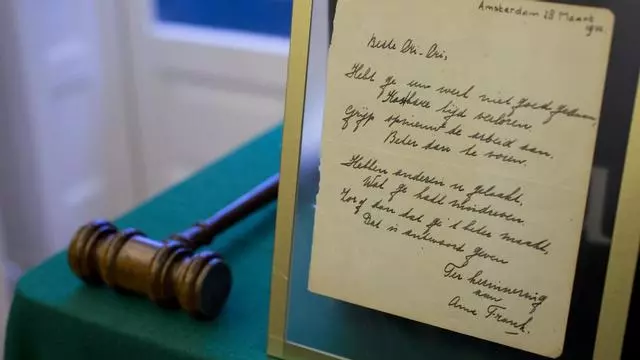 Amsterdam 28 Maart
1942.
Beste Cri-Cri,
Hebt ge uw werk niet goed gedaan,
Kostbare tijd verloren,
Grijp opnieuw de arbeid aan.
Beter dan te voren.
Hebben anderen u gelaakt,
Wat ge hadt misdreven.
Zorg dan dat ge 't beter maakt,
Dat is antwoord geven
Ter herinnering
aan
Anne Frank.